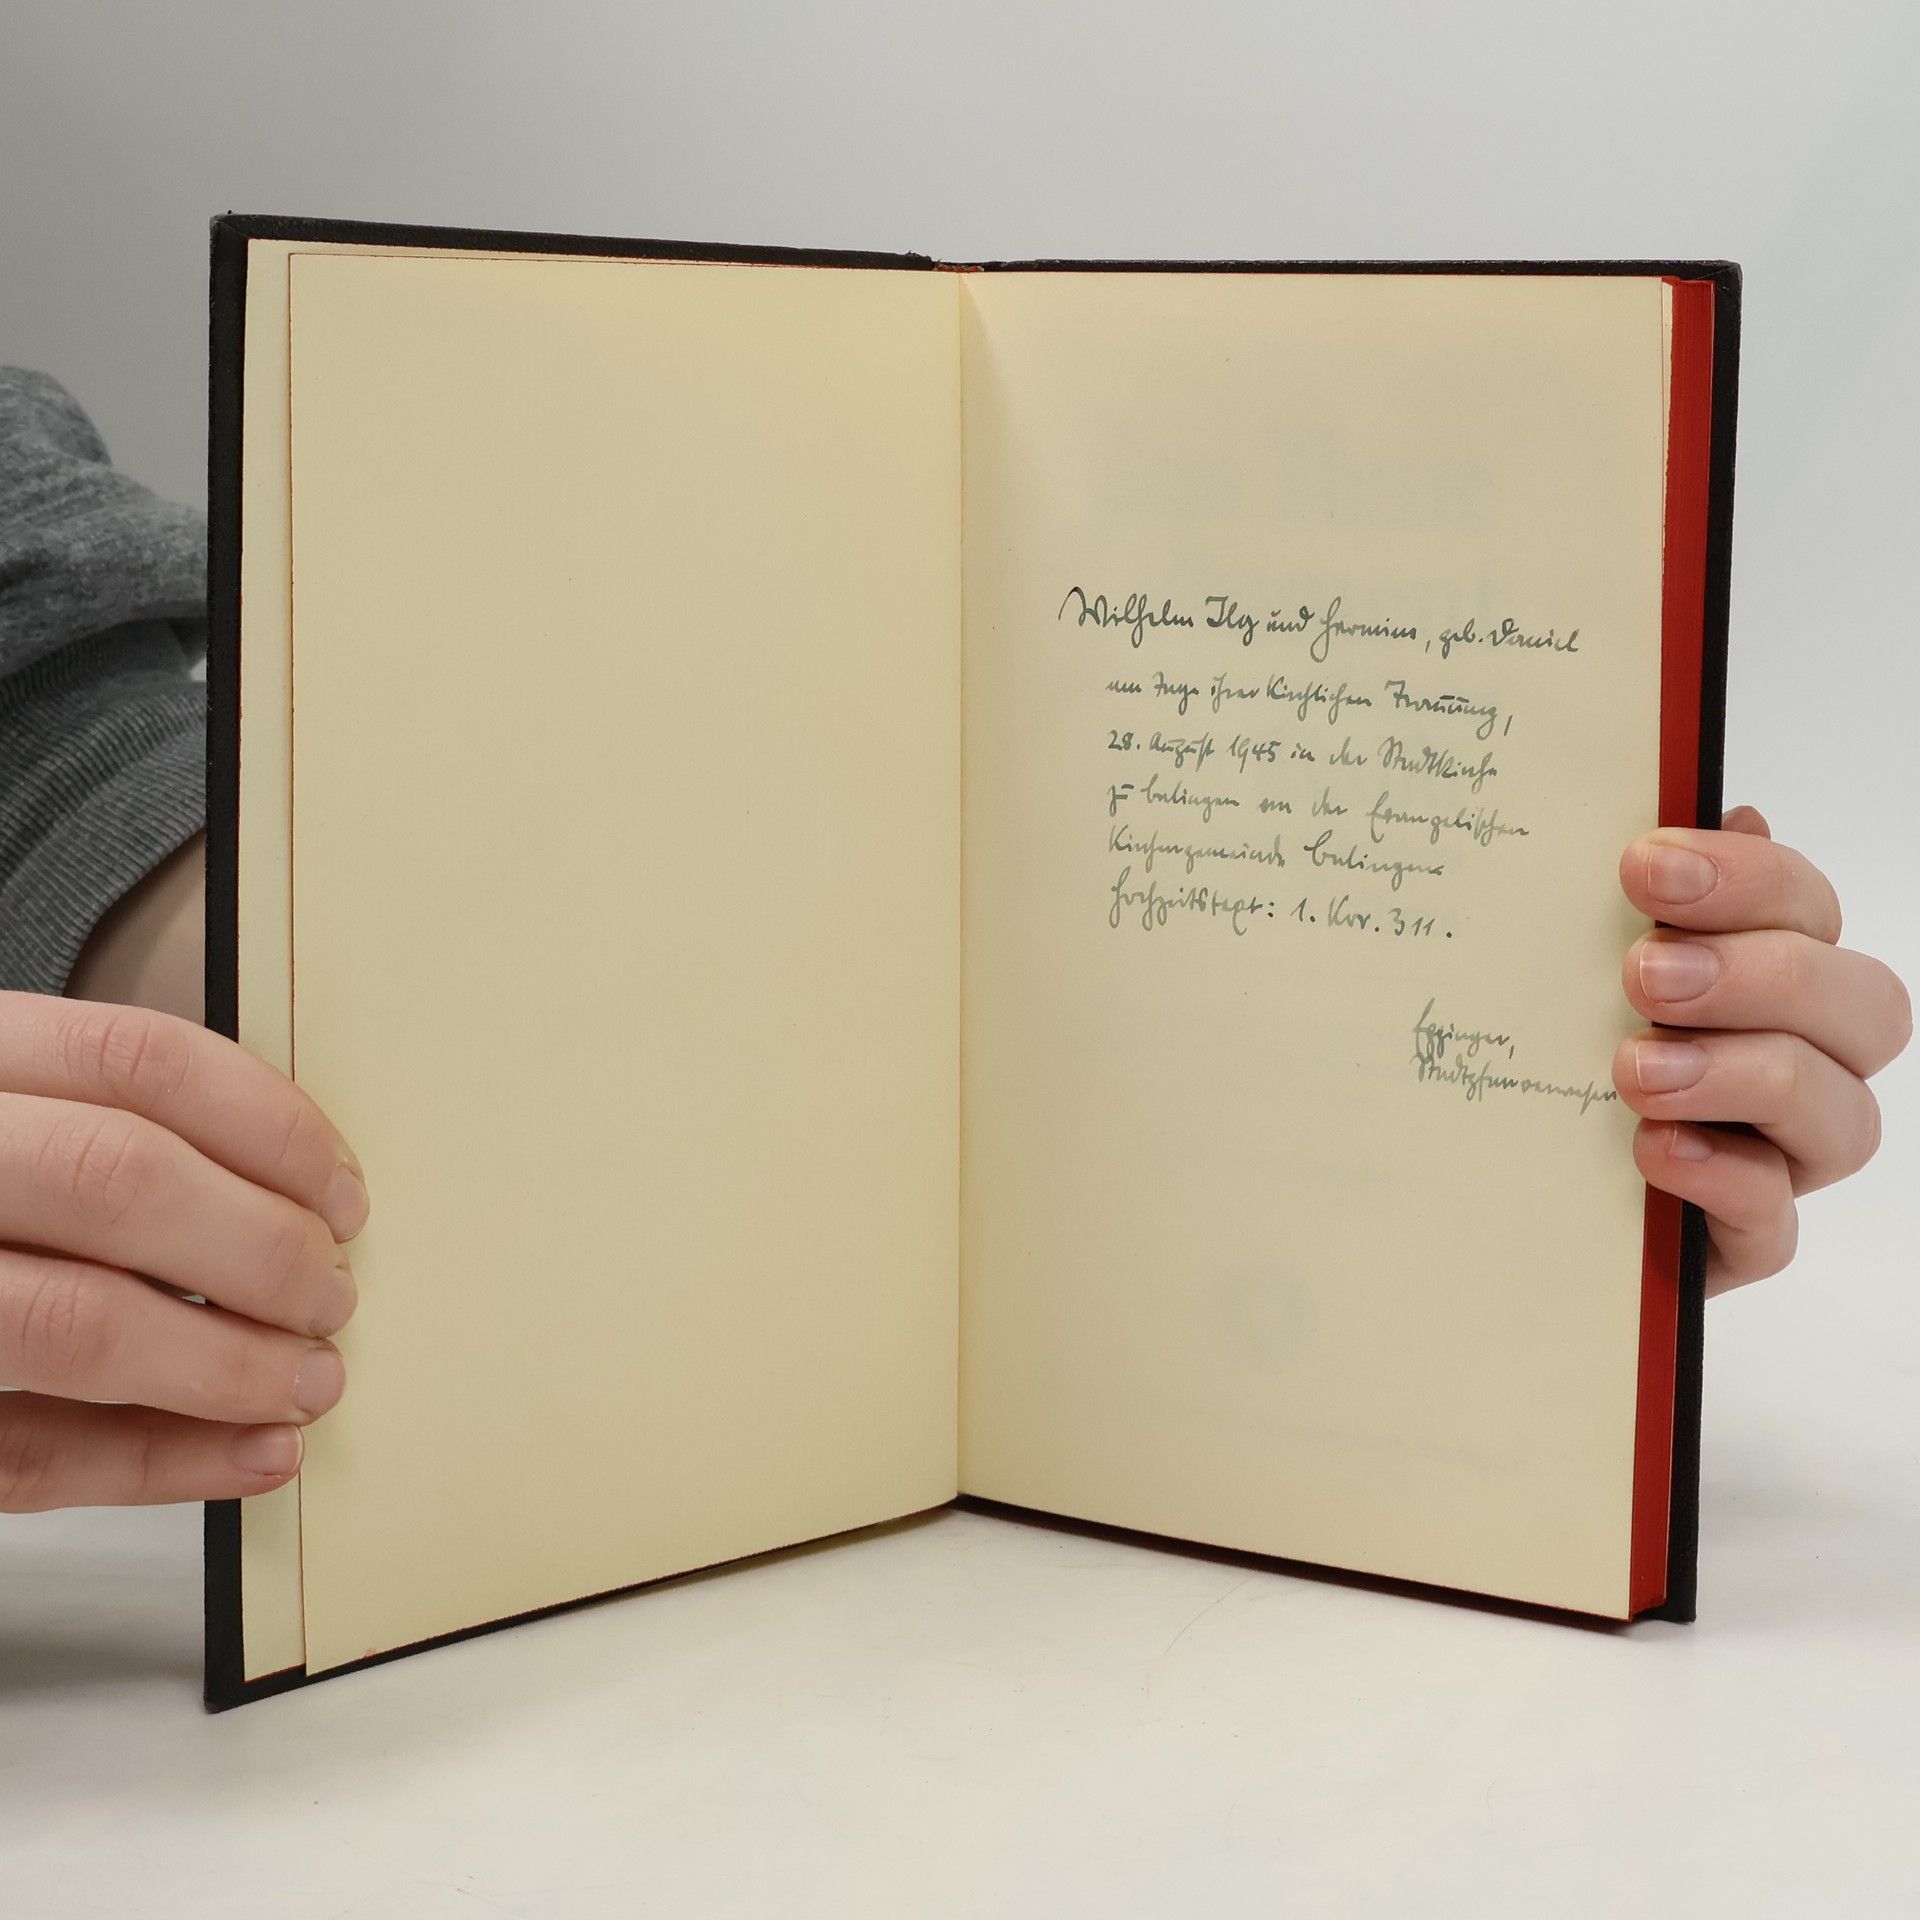 Wilhelm Ilg und Hermine, geb. Daniel
am Tage ihrer kirchlichen Trauung,
28. August 1945 in der Stadtkirche
zu Balingen von der Evangelischen
Kirchengemeinde Balingen
Hochzeitstext: 1. Kor. 3 11.
Eppinger,
Stadtpfarrverweser